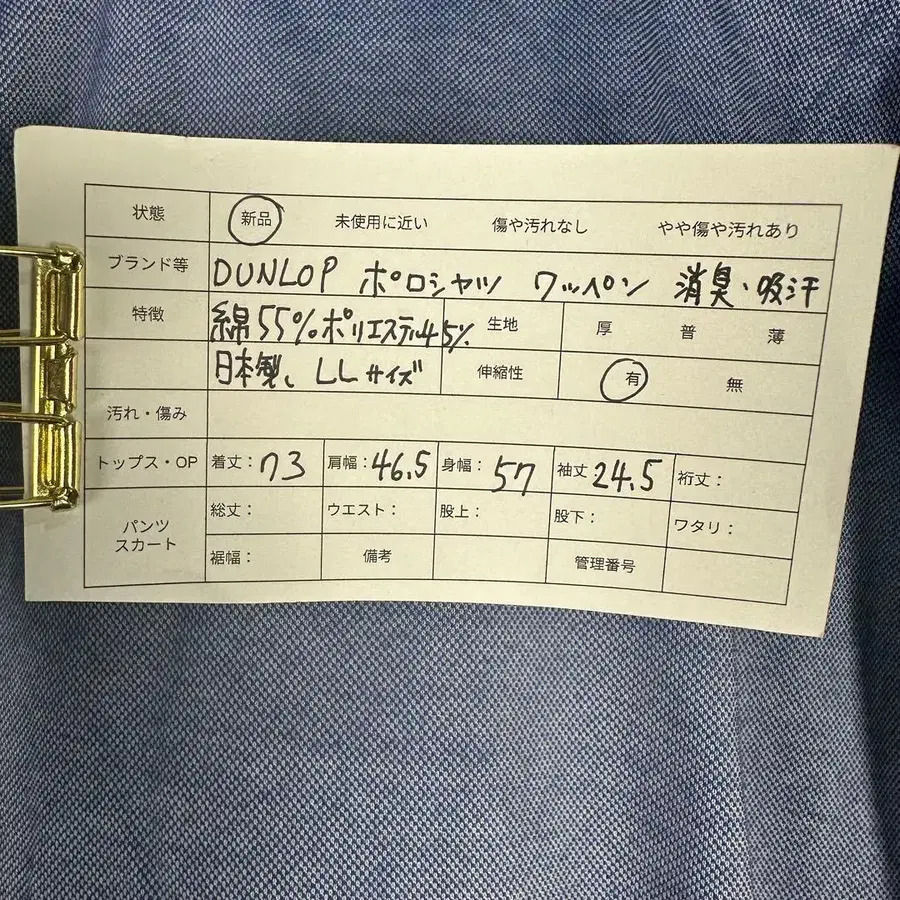 状態 新品 未使用に近い 傷や汚れなし やや傷や汚れあり
ブランド等 DUNLOP ポロシャツ ワッペン 消臭、吸汗
特徴 綿55%ポリエステル45% 生地 厚 普 薄
日本製、LLサイズ 伸縮性 有 無
汚れ・傷み
トップス・OP 着丈:73 肩幅:46.5 身幅:57 袖丈24.5 裄丈:
パンツ スカート 総丈: ウエスト: 股上: 股下: ワタリ:
裾幅: 備考 管理番号